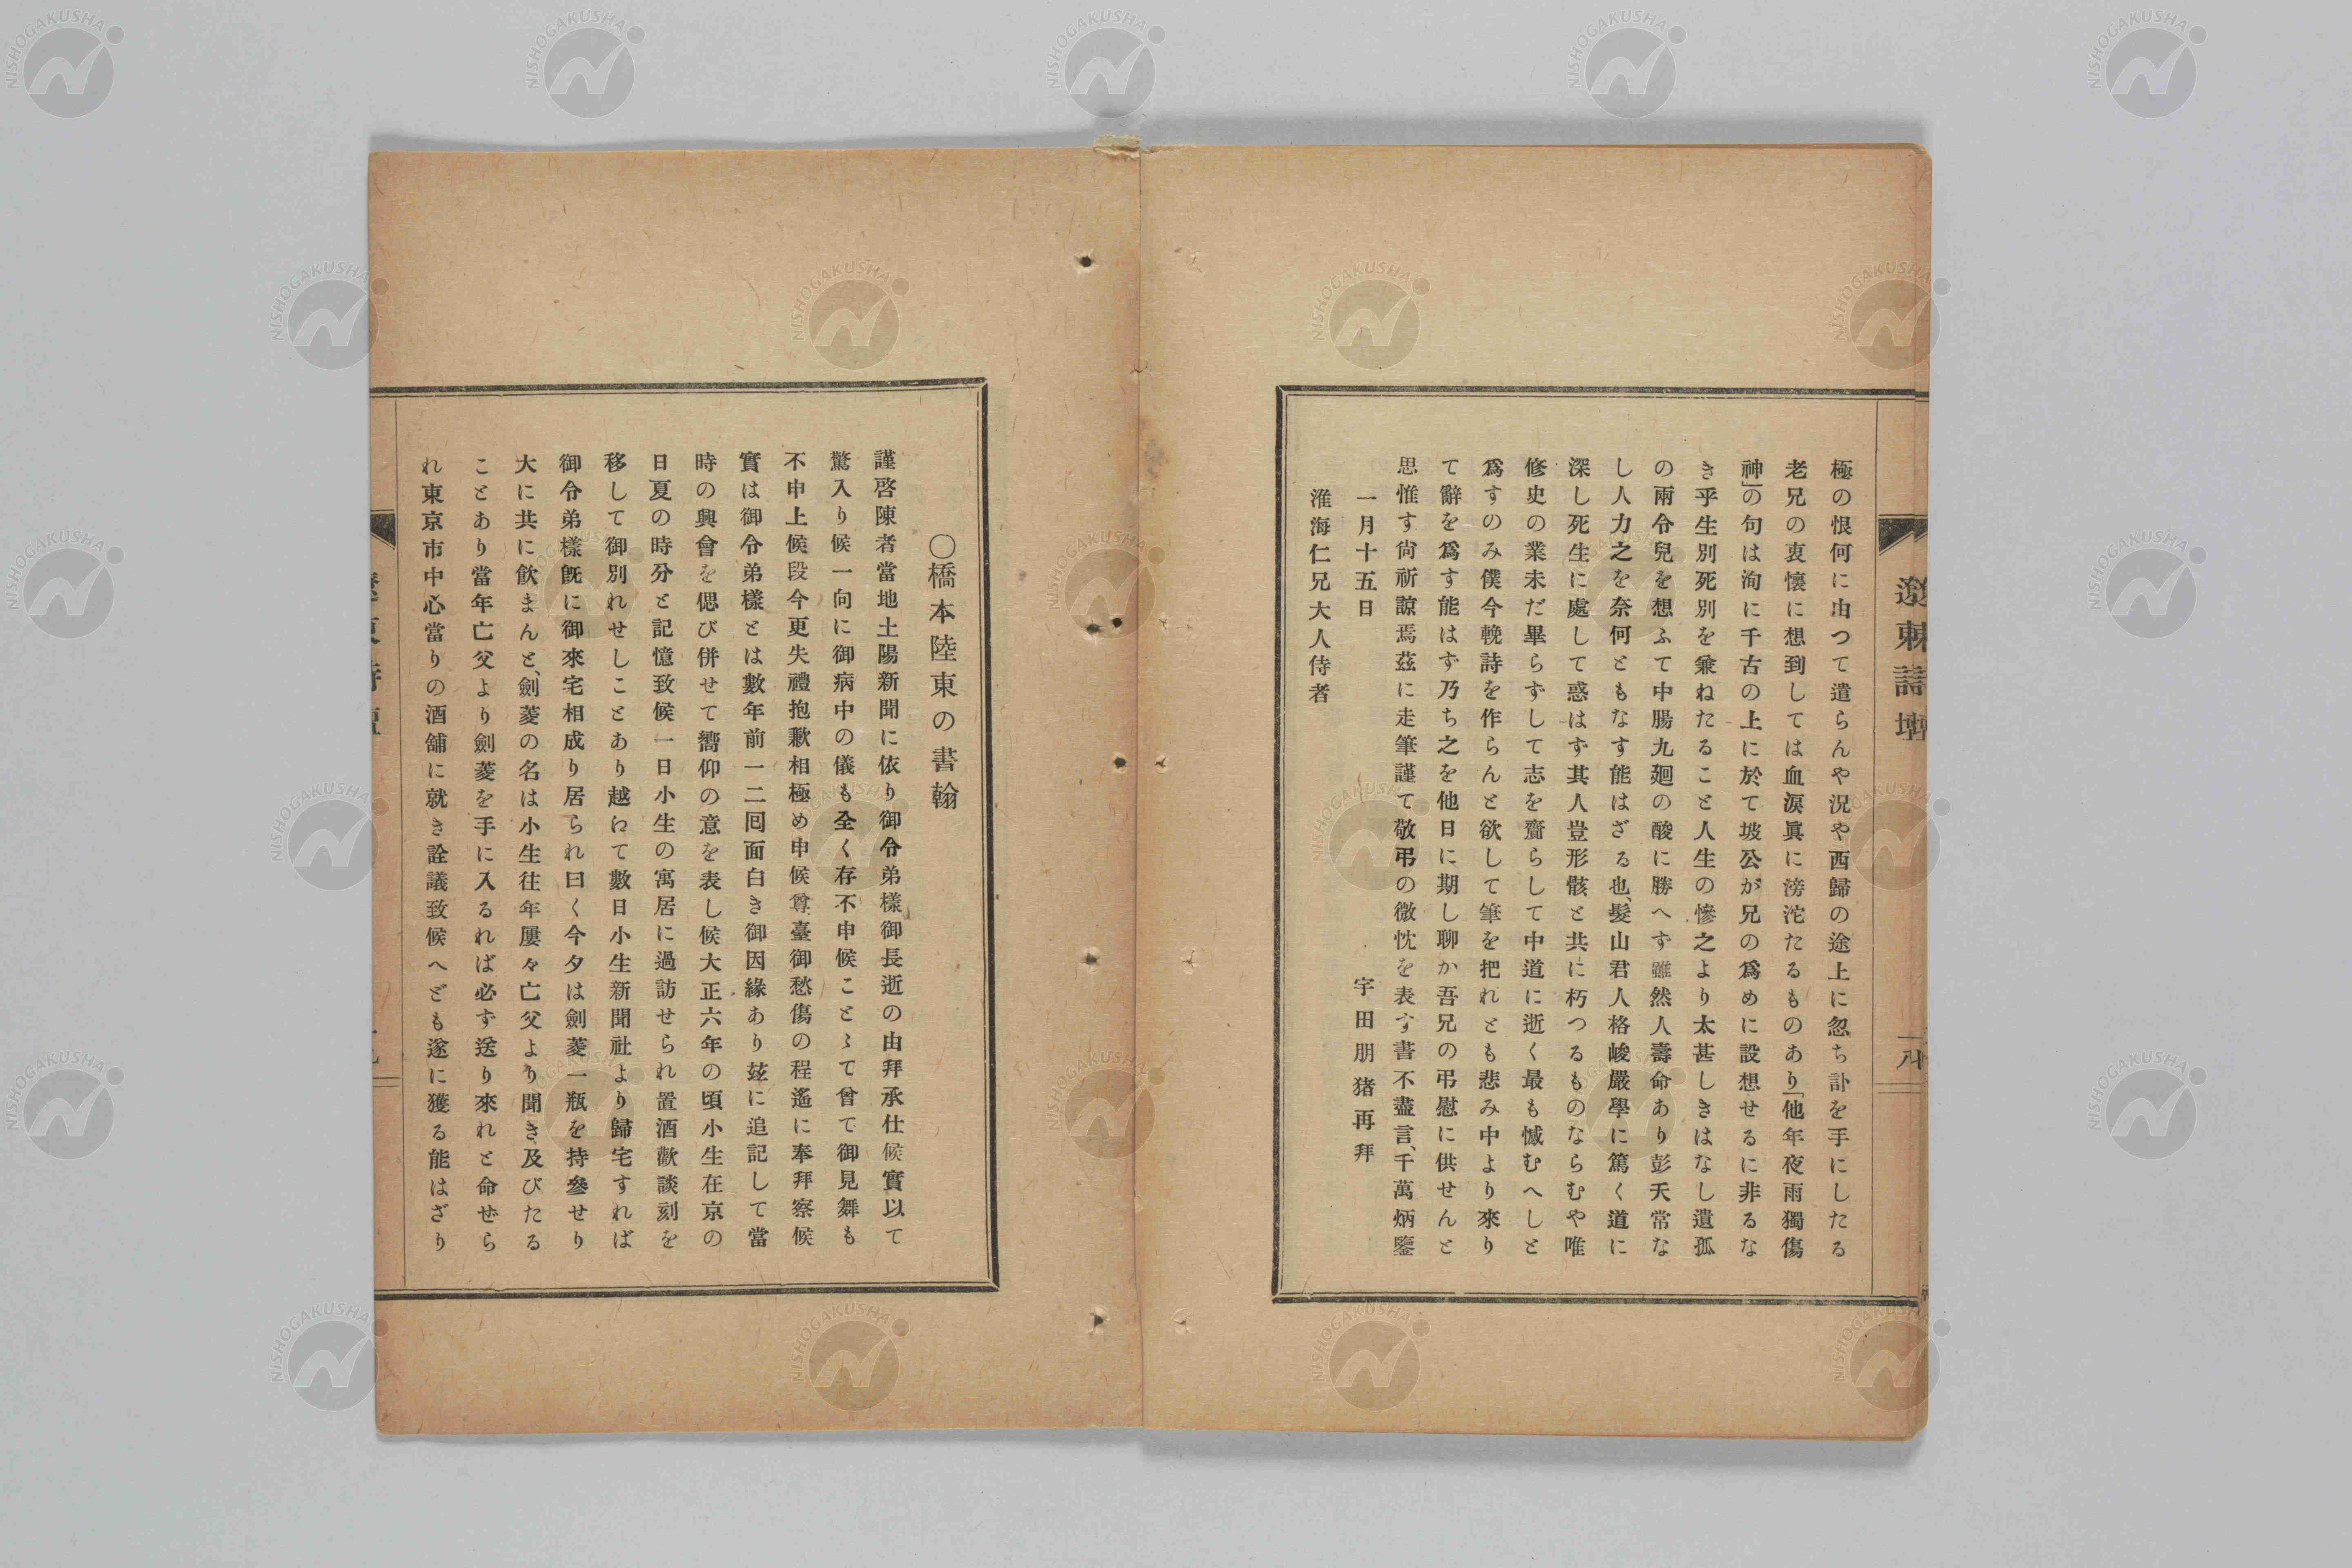 遼東詩壇
一八
極の恨何に由つて遣らんや況や西歸の途上に忽ち訃を手にしたる
老兄の衷懷に想到しては血淚眞に滂沱たるものあり「他年夜雨獨傷
神」の句は洵に千古の上に於て坡公が兄の爲めに設想せるに非るな
き乎生別死別を兼ねたること人生の慘之より太甚しきはなし遺孤
の兩令兒を想ふて中腸九廻の酸に勝へず雖然人壽命あり彭天常な
し人力之を奈何ともなす能はざる也、髮山君人格峻嚴學に篤く道に
深し死生に處して惑はず其人豈形骸と共に朽つるものならむや唯
修史の業未だ畢らずして志を齎らして中道に逝く最も憾むへしと
爲すのみ僕今輓詩を作らんと欲して筆を把れとも悲み中より來り
て辭を爲す能はず乃ち之を他日に期し聊か吾兄の弔慰に供せんと
思惟す尙祈諒焉茲に走筆謹て敬弔の微忱を表す書不盡言、千萬炳鑒
一月十五日 宇田朋猪再拜
淮海仁兄大人侍者
〇橋本陸東の書翰
謹啓陳者當地土陽新聞に依り御令弟樣御長逝の由拜承仕候實以て
驚入り候一向に御病中の儀も全く存不申候ことゝて曾て御見舞も
不申上候段今更失禮抱歉相極め申候尊臺御愁傷の程遙に奉拜察候
實は御令弟樣とは數年前一二囘面白き御因緣あり茲に追記して當
時の興會を偲び併せて嚮仰の意を表し候大正六年の頃小生在京の
日夏の時分と記憶致候一日小生の寓居に過訪せられ置酒歡談刻を
移して御別れせしことあり越ねて數日小生新聞社より歸宅すれば
御令弟樣旣に御來宅相成り居られ曰く今夕は劍菱一瓶を持參せり
大に共に飮まんと、劍菱の名は小生往年屢々亡父より聞き及びたる
ことあり當年亡父より劍菱を手に入るれば必ず送り來れと命ぜら
れ東京市中心當りの酒舖に就き詮議致候へども遂に獲る能はざり